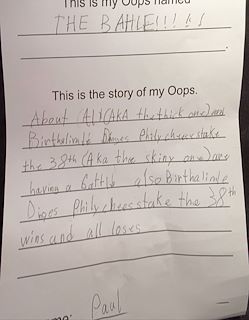 This is my Oops named
THE BAHLE!!!!!
This is the story of my Oops.
About (AKA the thick one) and
Birthalinde Philycheesestake
the 38th (AKa the skiny one) are
having a battle also Birthalinde
Diges Philycheesestake the 38th
wins and all loses
Paul